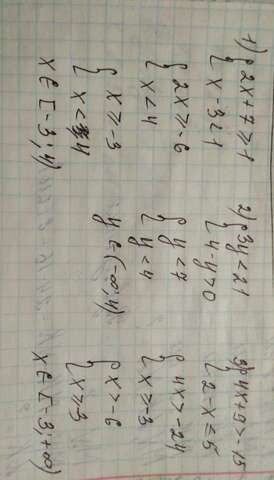 1) { 2x+7≥1
x-3<1
{ 2x≥-6
x<4
{ x≥-3
x<4
x∈[-3;4)
2) { 3y<21
4-y>0
{ y<7
y<4
y∈(-∞;4)
3) { 4x+9>-15
2-x≤5
{ 4x>-24
x≥-3
{ x>-6
x≥-3
x∈[-3;+∞)